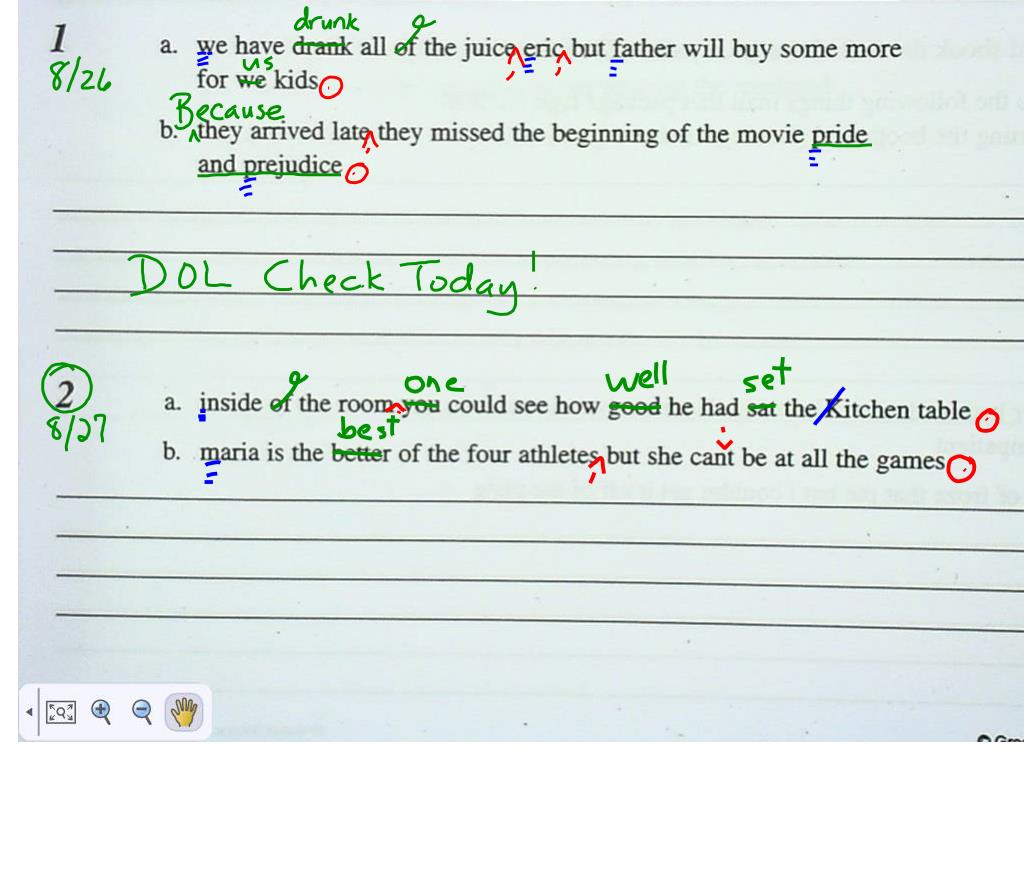 drunk
1 a. we have drank all of the juice eric but father will buy some more
8/26 us
for we kids
Because
b. they arrived late they missed the beginning of the movie pride
and prejudice
DOL Check Today!
one well set
2 a. inside of the room you could see how good he had sat the Kitchen table
8/27 best
b. maria is the better of the four athletes but she can't be at all the games